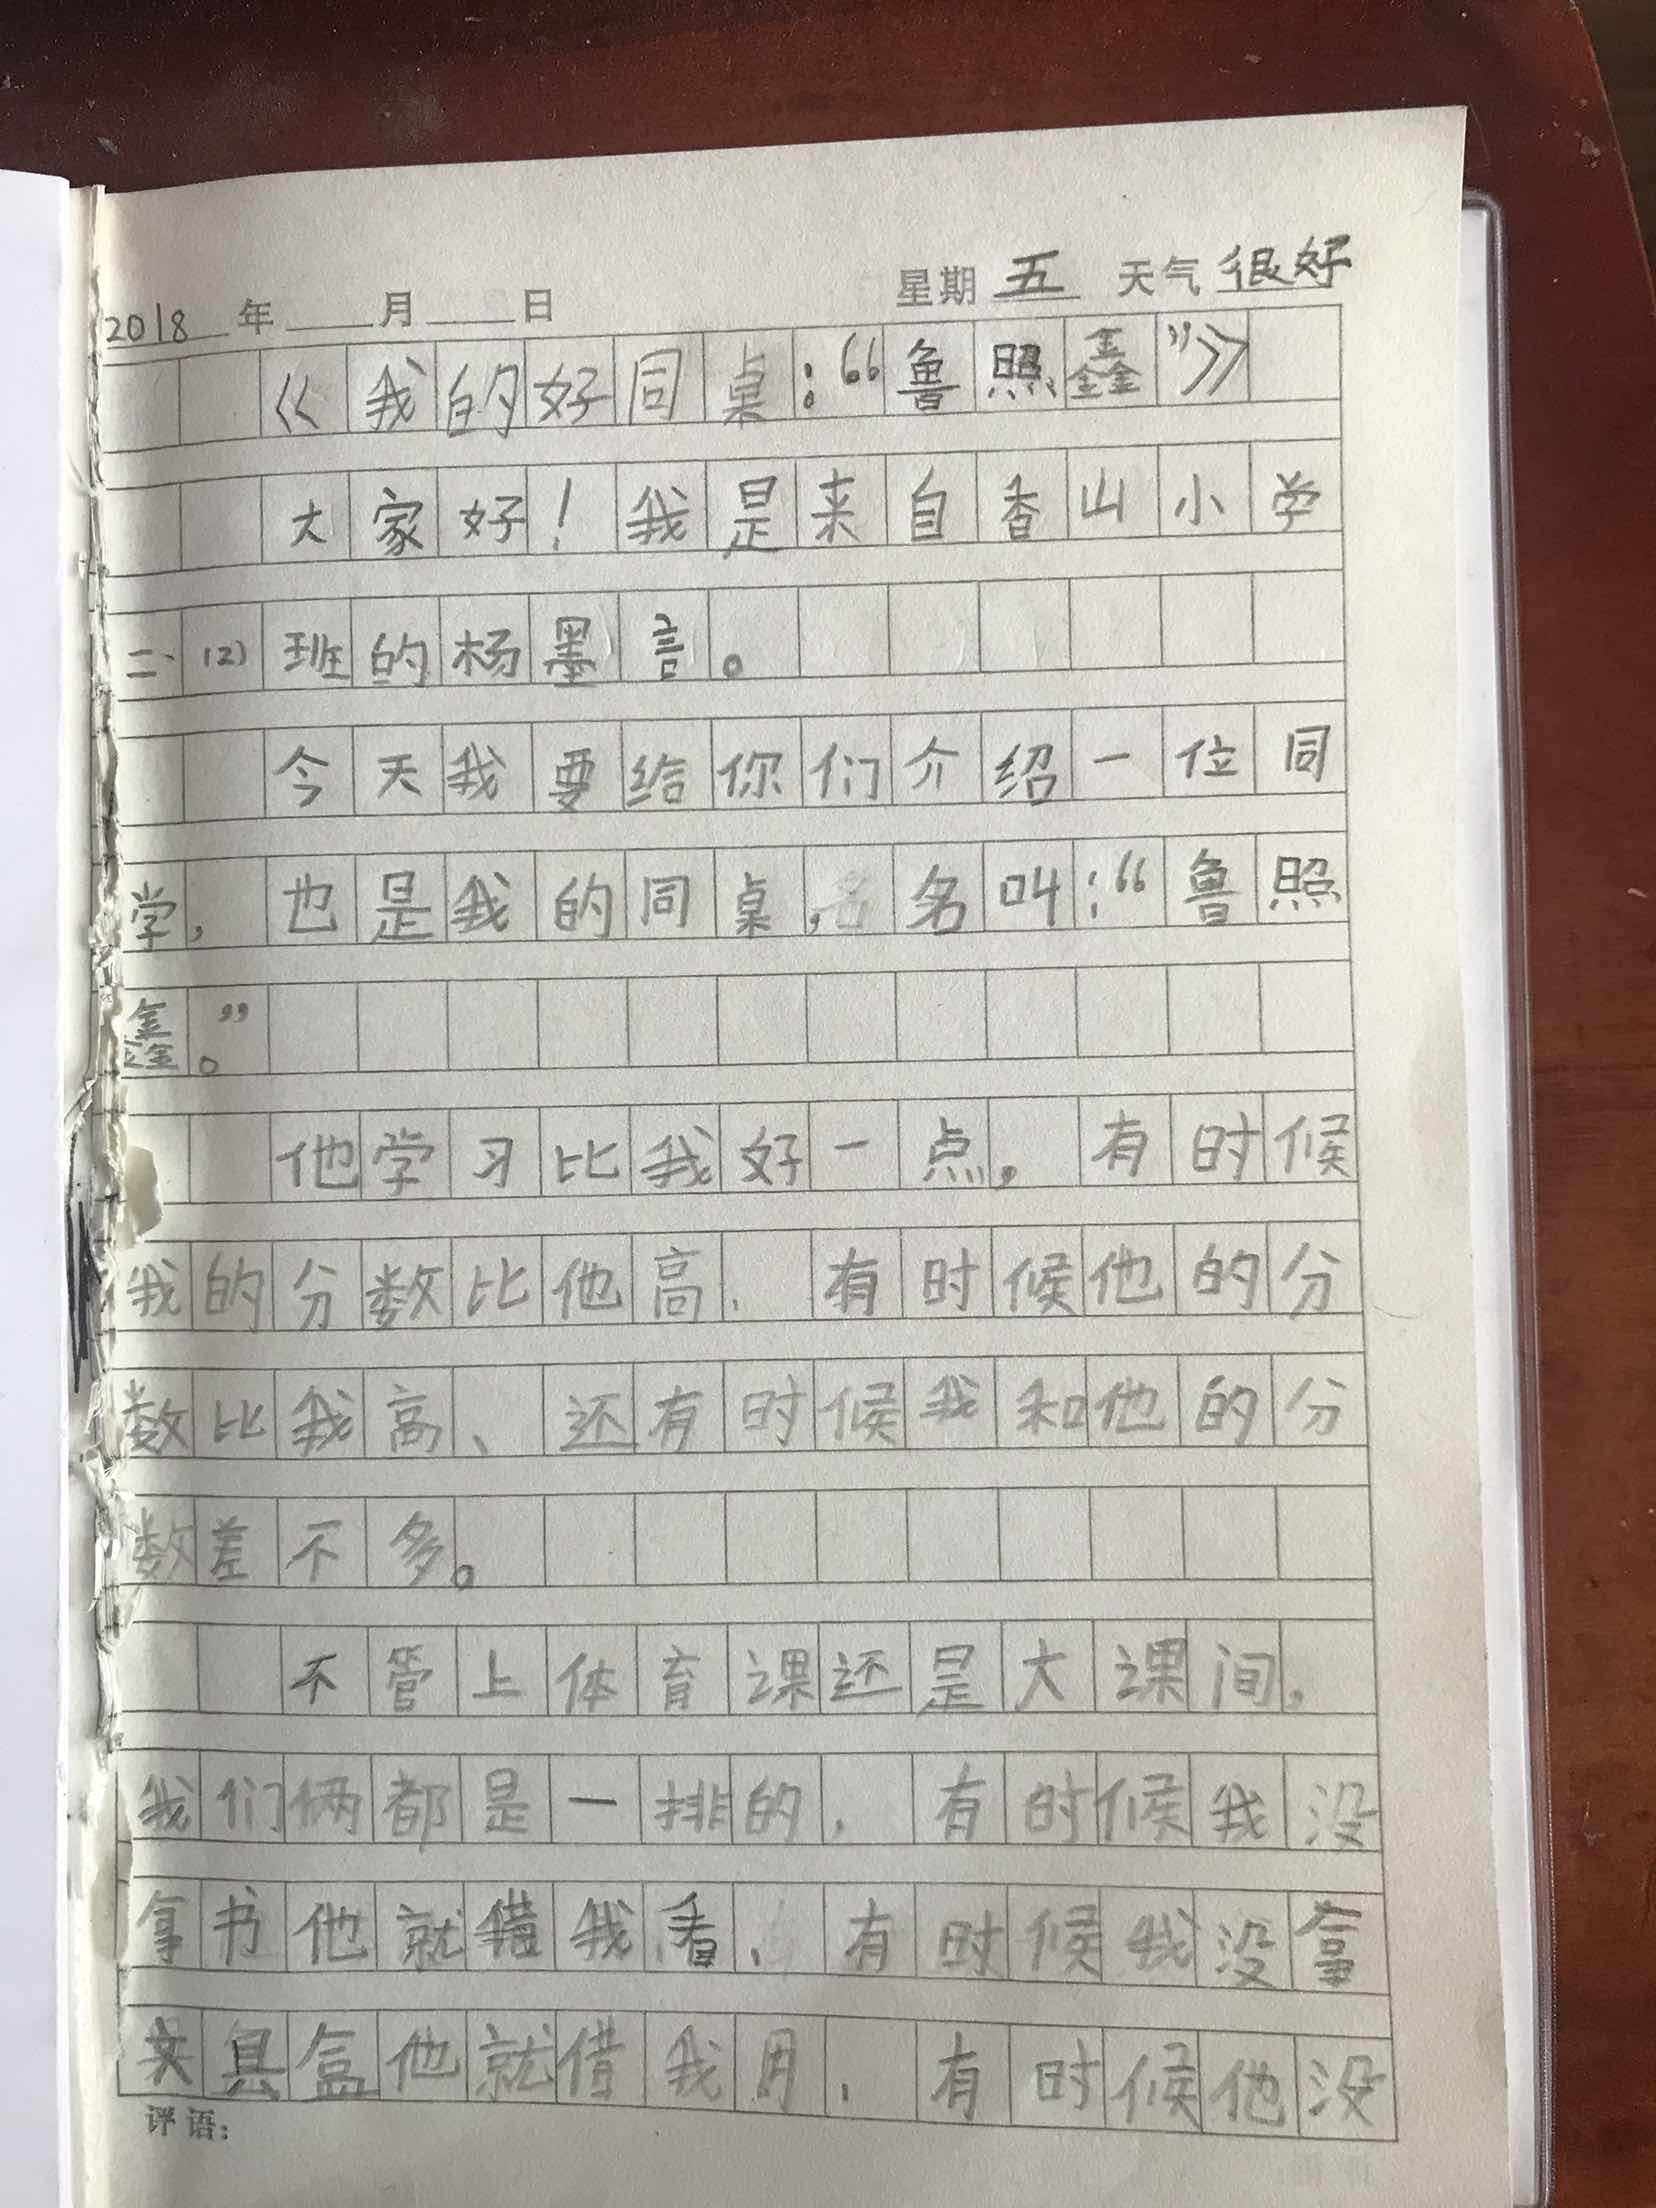 2018 年 月 日 星期 五 天气 很好
《我的好同桌:“鲁照鑫”》
大家好!我是来自香山小学
二、(2)班的杨墨言。
今天我要给你们介绍一位同
学,也是我的同桌,名叫:“鲁照
鑫。”
他学习比我好一点,有时候
我的分数比他高、有时候他的分
数比我高、还有时候我和他的分
数差不多。
不管上体育课还是大课间,
我们俩都是一排的,有时候我没
拿书他就借我看、有时候我没拿
文具盒他就借我用、有时候他没
评语: